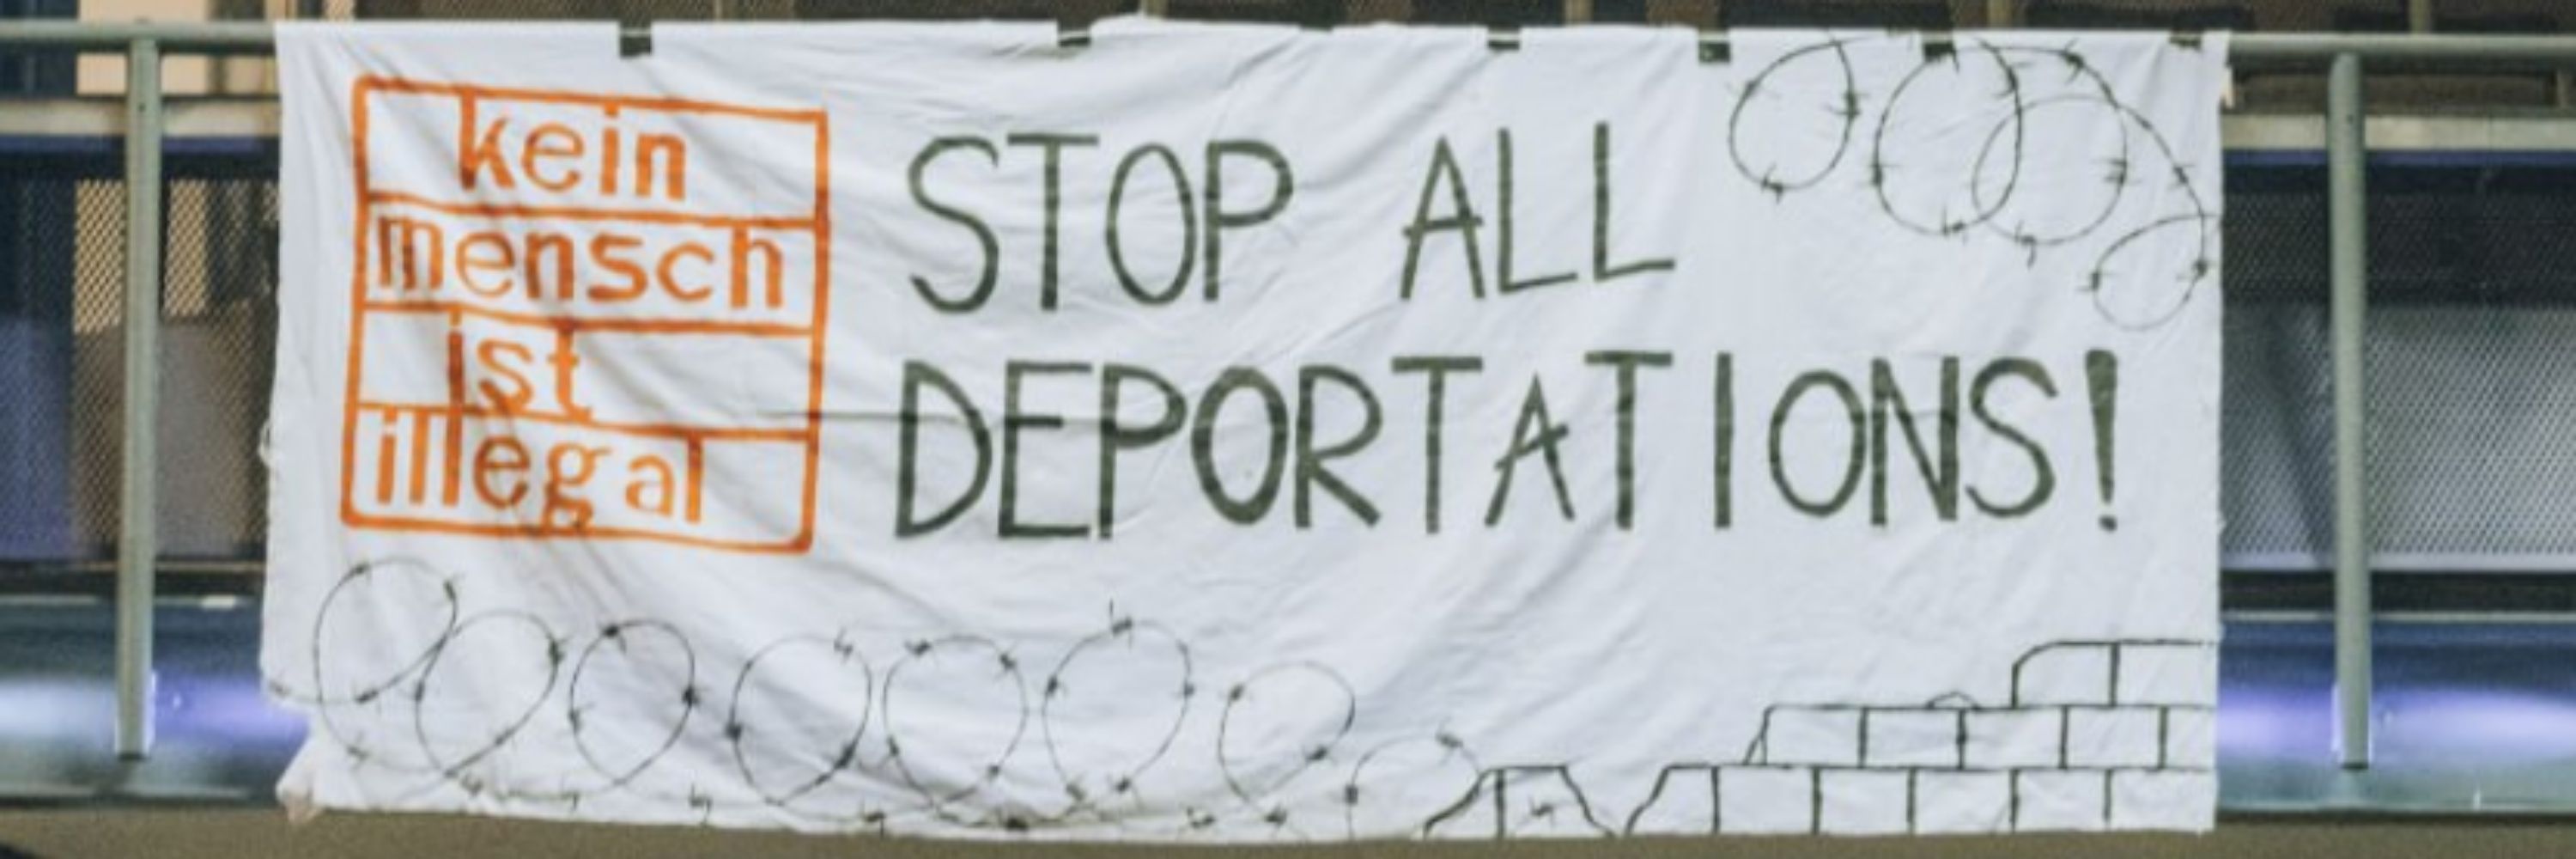 kein
mensch
ist
illegal
STOP ALL
DEPORTATIONS!